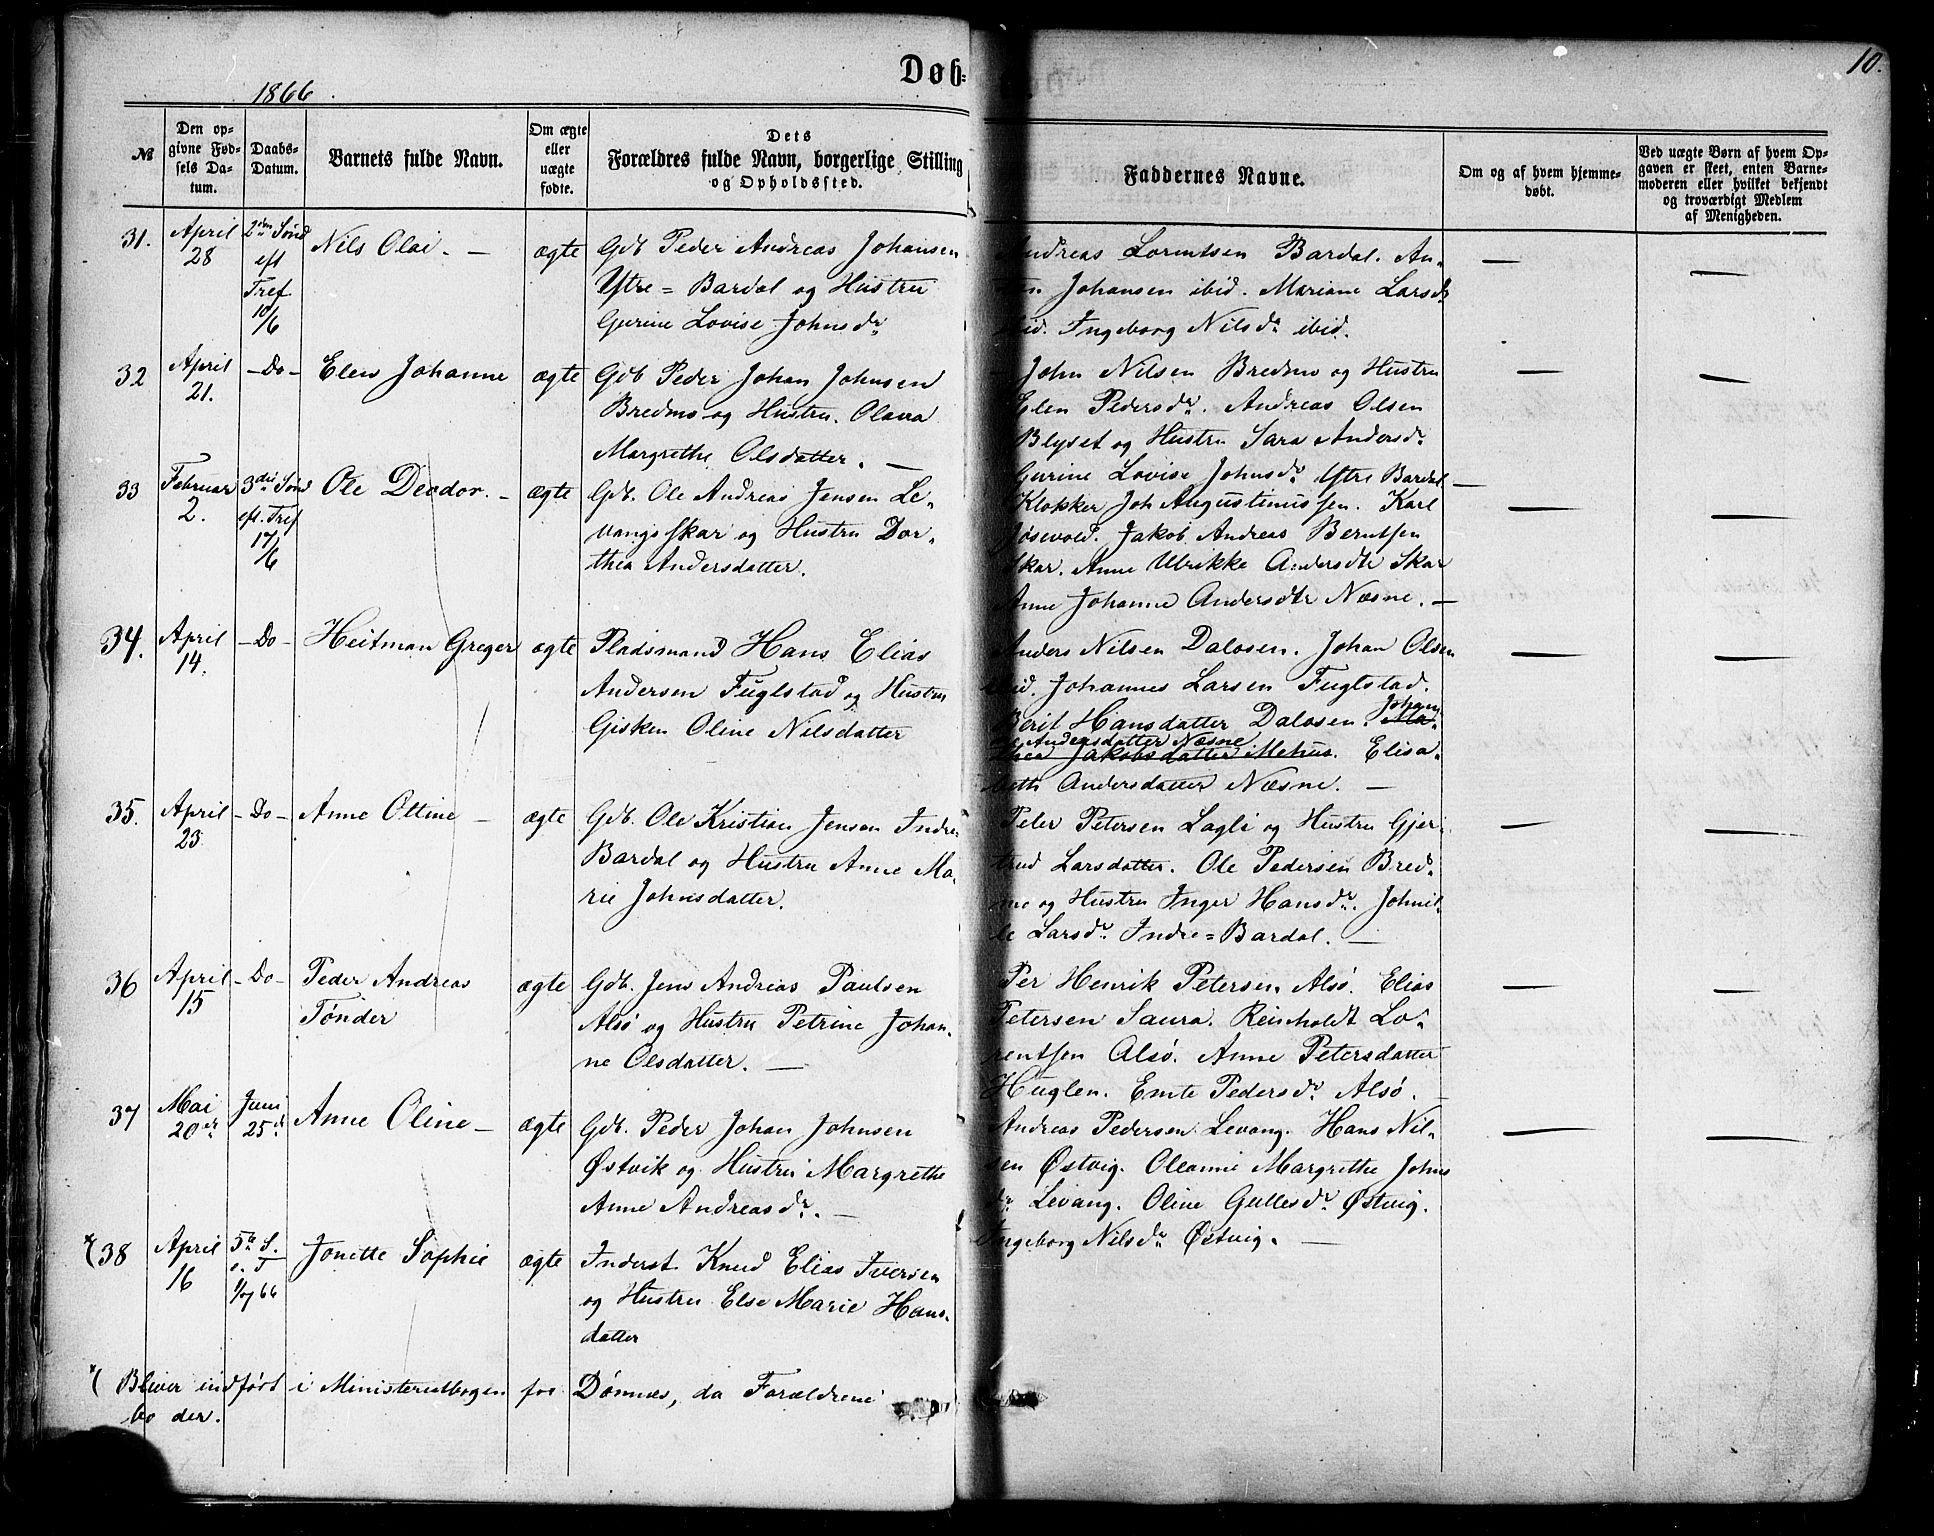 1866.
Døb-
10.
№
Den op-
givne Fød-
sels Da-
tum.
Daabs-
Datum.
Barnets fulde Navn.
Om ægte
eller
uægte
fødte.
Dets
Forældres fulde Navn, borgerlige Stilling
og Opholdssted.
Faddernes Navne.
Om og af hvem hjemme-
døbt.
Ved uægte Børn af hvem Op-
gaven er skeet, enten Barne-
moderen eller hvilket bekjendt
og troværdigt Medlem
af Menigheden.
31.
April
28
2den Sønd
eft
Tref
10/6
Nils Olai. —
ægte
Gdb Peder Andreas Johansen
Ytre = Bardal og Hustru
Gurine Lovise Johnsdr
Andreas Lorentsen Bardal. An-
Johansen ibid. Mariane Larsdr
ibid. Ingeborg Nilsdr ibid.
32
April
21.
- Do -
Elen Johanne
ægte
Gdb Peder Johan Johnsen
Bredmo og Hustru. Olava
Margrethe Olsdatter. —
John Nilsen Bredmo og Hustru
Elen Pedersdr. Andreas Olsen
Blyset og Hustru Sara Andersdr
Gurine Lovise Johnsdr Ytre Bardal
33
Februar
2.
3die Sønd
eft. Tref
17/6
Ole Deodor. -
ægte
Gdb. Ole Andreas Jensen Le-
vangsskar og Hustru Dor-
thea Andersdatter.
Klokker Joh Augustinussen. Karl
Jøsevold. Jakob Andreas Berntsen
Skar. Anne Ulrikke Andersdtr Skar
Anne Johanne Andersdtr Næsne. —
34.
April
14.
- Do -
Heitman Greger
ægte
Pladsmand Hans Elias
Andersen Fuglstad og Hustru
Gisken Oline Nilsdatter
Anders Nilsen Dalosen. Johan Olsen
ibid. Johannes Larsen Fuglstad.
Berit Hansdatter Dalosen.
Andersdatter Næsne
Jakobsdatter Mehus. Elisa-
beth Andersdatter Næsne. —
35.
April
23
- Do -
Anne Oltine —
ægte
Gdb. Ole Kristian Jensen Indre
Bardal og Hustru Anne Ma-
rie Johnsdatter.
Peter Petersen Lagli og Hustru Gjer-
trud Larsdatter. Ole Pedersen Bred-
mo og Hustru Inger Hansdr. Johnil-
le Larsdr Indre = Bardal. —
36
April
15
- Do -
Peder Andreas
Tønder
ægte
Gdb. Jens Andreas Paulsen
Alsø og Hustru Petrine Johan-
ne Olsdatter. —
Per Henrik Petersen Alsø. Elias
Petersen Saura. Reinholdt Lo-
rentsen Alsø. Anne Petersdatter
Huglen. Emte Pedersdr Alsø.
37
Mai
20
Juni
25
Anne Oline —
ægte
Gdb. Peder Johan Johnsen
Østvik og Hustru Margrethe
Anne Andreasdr. —
Andreas Pedersen Levang. Hans Nil-
sen Østvig. Oleanne Margrethe Johns
dr Levang. Oline Gullesdr Østvig.
Ingeborg Nilsdr Østvig. —
38
April
16
5te S.
e. T
1/7 66
Jonette Sophie
ægte
Inderst Knud Elias Iversen
og Hustru Else Marie Hans-
datter
Bliver indført i Ministerialbogen for Dønnæs, da Forældrene
bo der.